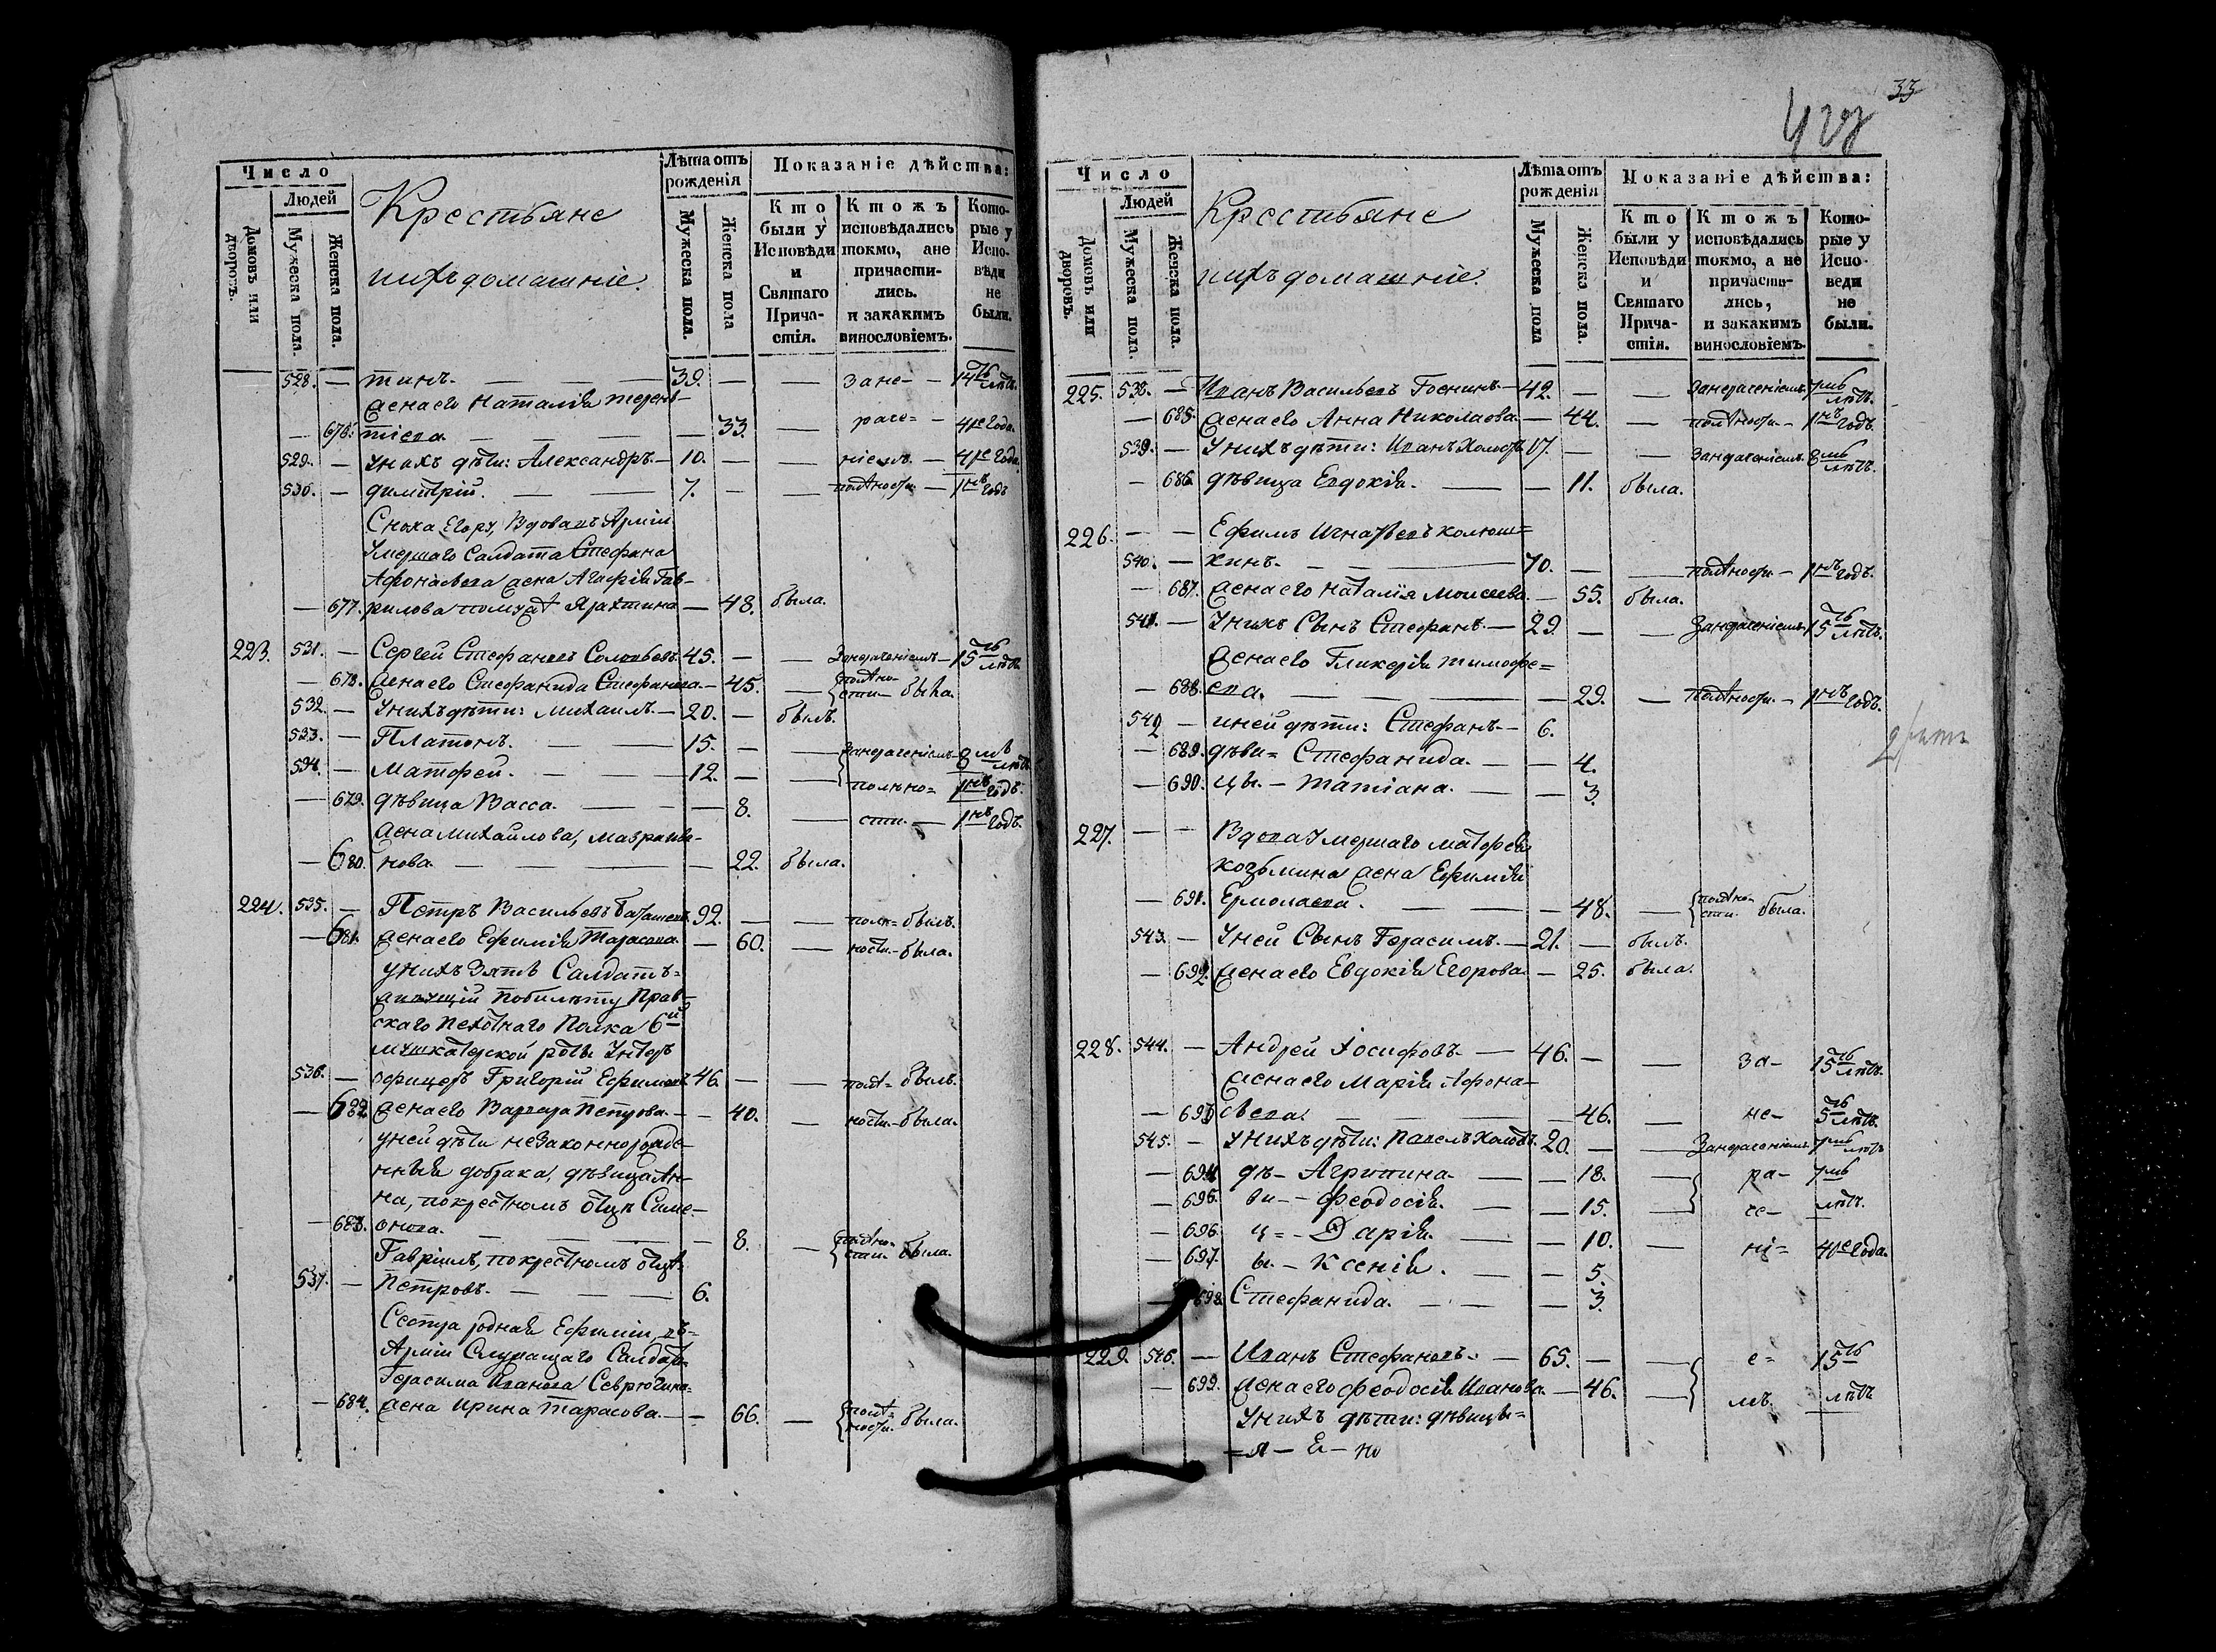 Число
Людей
Домовъ или дворовъ.
Мужеска пола.
Женска пола.
Крестьяне
ихъ домашніе.
Лѣта отъ рожденія
Мужеска пола.
Женска пола
Показаніе дѣйства:
Кто были у Исповѣди и Святаго Прича-стія.
Ктожъ исповѣдались токмо, а не причасти-лись. и закакимъ винословіемъ.
Кото-рые у Испо-вѣди не были.
528. — тинъ. — — — 39. — — зане- — 14ть лѣтъ.
жена его Наталія Терень-
— 676. тіева — — — — 33. — раче= — 4ре года.
529. — у нихъ дѣти: Александръ. — 10. — — ніемъ. — 4ре года
530. — Димитрій. — — 7. — — — 1нъ годъ
Сноха Егору, Вдова въ Арміи
Умершаго Салдата Стефана
Афонасьева жена Агафія Гав-
— 677. рилова — 48. была.
223. 531. — Сергей Стефановъ Соловьевъ. 45. — — Занераченіемъ — 15ть лѣтъ
— 678. жена его Стефанида Стефанова. — 45. — была.
532. — У нихъ дѣти: Михаилъ. — 20. — былъ.
533. — Платонъ. — — 15. — — Занераченіемъ — 8мь лѣтъ
534. — Матфей. — — 12. — — 1нъ годъ.
— 679. дѣвица Васса. — — — 8. — сти. — 1нъ годъ.
жена Михайлова, Мавра Ива-
— 680. нова — — — 22. была.
224. 535. — Петръ Васильевъ 92. — — былъ.
— 681. жена его Ефимія Тарасова. — 60. — ности — была.
у нихъ Зять Салдатъ=
живущій по билету
скаго Пехотнаго Полка 6й
мушкатерской роты Унтеръ
536. — офицеръ Григорій Ефимовъ 46. — — былъ.
— 682. жена его Варвара Петрова. — — 40. — ности. — была.
у ней дѣти незаконнорожде-
нныя до брака, дѣвица Ан-
на, по крестномъ отцѣ Симе-
— 683. онова. — — — — 8. — была.
Гавріилъ, по крестномъ отцѣ
537. — Петровъ. — — — 6.
Сестра родная Ефиміи, въ=
Арміи Служащаго Салдата
Герасима Иванова Севрюгина=
— 684. жена Ирина Тарасова. — — 66. — была.
33
Число
Людей
Домовъ или дворовъ.
Мужеска пола.
Женска пола.
Крестьяне
ихъ домашніе.
Лѣта отъ рожденія
Мужеска пола
Женска пола.
Показаніе дѣйства:
Кто были у Исповѣди и Святаго Прича-стія.
Ктожъ исповѣдались токмо, а не причасти-лись, и закакимъ винословіемъ.
Кото-рые у Испо-веди не были.
225. 538. — Иванъ Васильевъ 42. — — Занераченіемъ 7мь лѣтъ.
— 685. жена его Анна Николаева. — 44. — — 1нъ годъ.
539. — У нихъ дѣти: Иванъ Холостъ 17. — — Занераченіемъ. 8мь лѣтъ.
— 686. дѣвица Евдокія. — — 11. была.
226. — — Ефимъ Игнатьевъ Колюш=
540. — кинъ. — — — 70. — — — 1нъ годъ.
— 687. жена его Наталія Моисеева. — 55. была.
541. — У нихъ Сынъ Стефанъ. — 29. — — Занераченіемъ 15ть лѣтъ.
жена его Гликерія Тимофе=
— 688. ева. — — — 29. — — 1нъ годъ.
542 — у ней дѣти: Стефанъ — 6.
— 689. дѣви= Стефанида. — — 4.
— 690. цы. — Татіана. — — 3.
227. — — Вдова Умершаго Матфея
Козьмина жена Ефимія
— 691. Ермолаева. — — — 48. — была.
543. — У ней Сынъ Герасимъ. — 21. — былъ.
— 692. жена его Евдокія Егорова. — 25. была.
228. 544. — Андрей Іосифовъ — 46. — — за- 15ть лѣтъ.
жена его Марія Афона-
— 693 сьева. — — — 46. — не- 5ть лѣтъ.
545. — У нихъ дѣти: Павелъ Холостъ. 20. — — Занераченіемъ 7мь лѣтъ
— 694 дѣ- Агрипина. — — 18. — ра- 7мь
— 695. ви-- Феодосія. — — 15. — че- лѣтъ.
— 696. ц=- Дарія. — — 10. — ні= 4ре года.
— 697. ы. - Ксенія. — — 5.
— 698. Стефанида. — — — 3.
229. 546. — Иванъ Стефановъ. — 65. — — е= 15ть
— 699. жена его Феодосія Иванова. — 46. — мъ лѣтъ
У нихъ дѣти: дѣвицы=